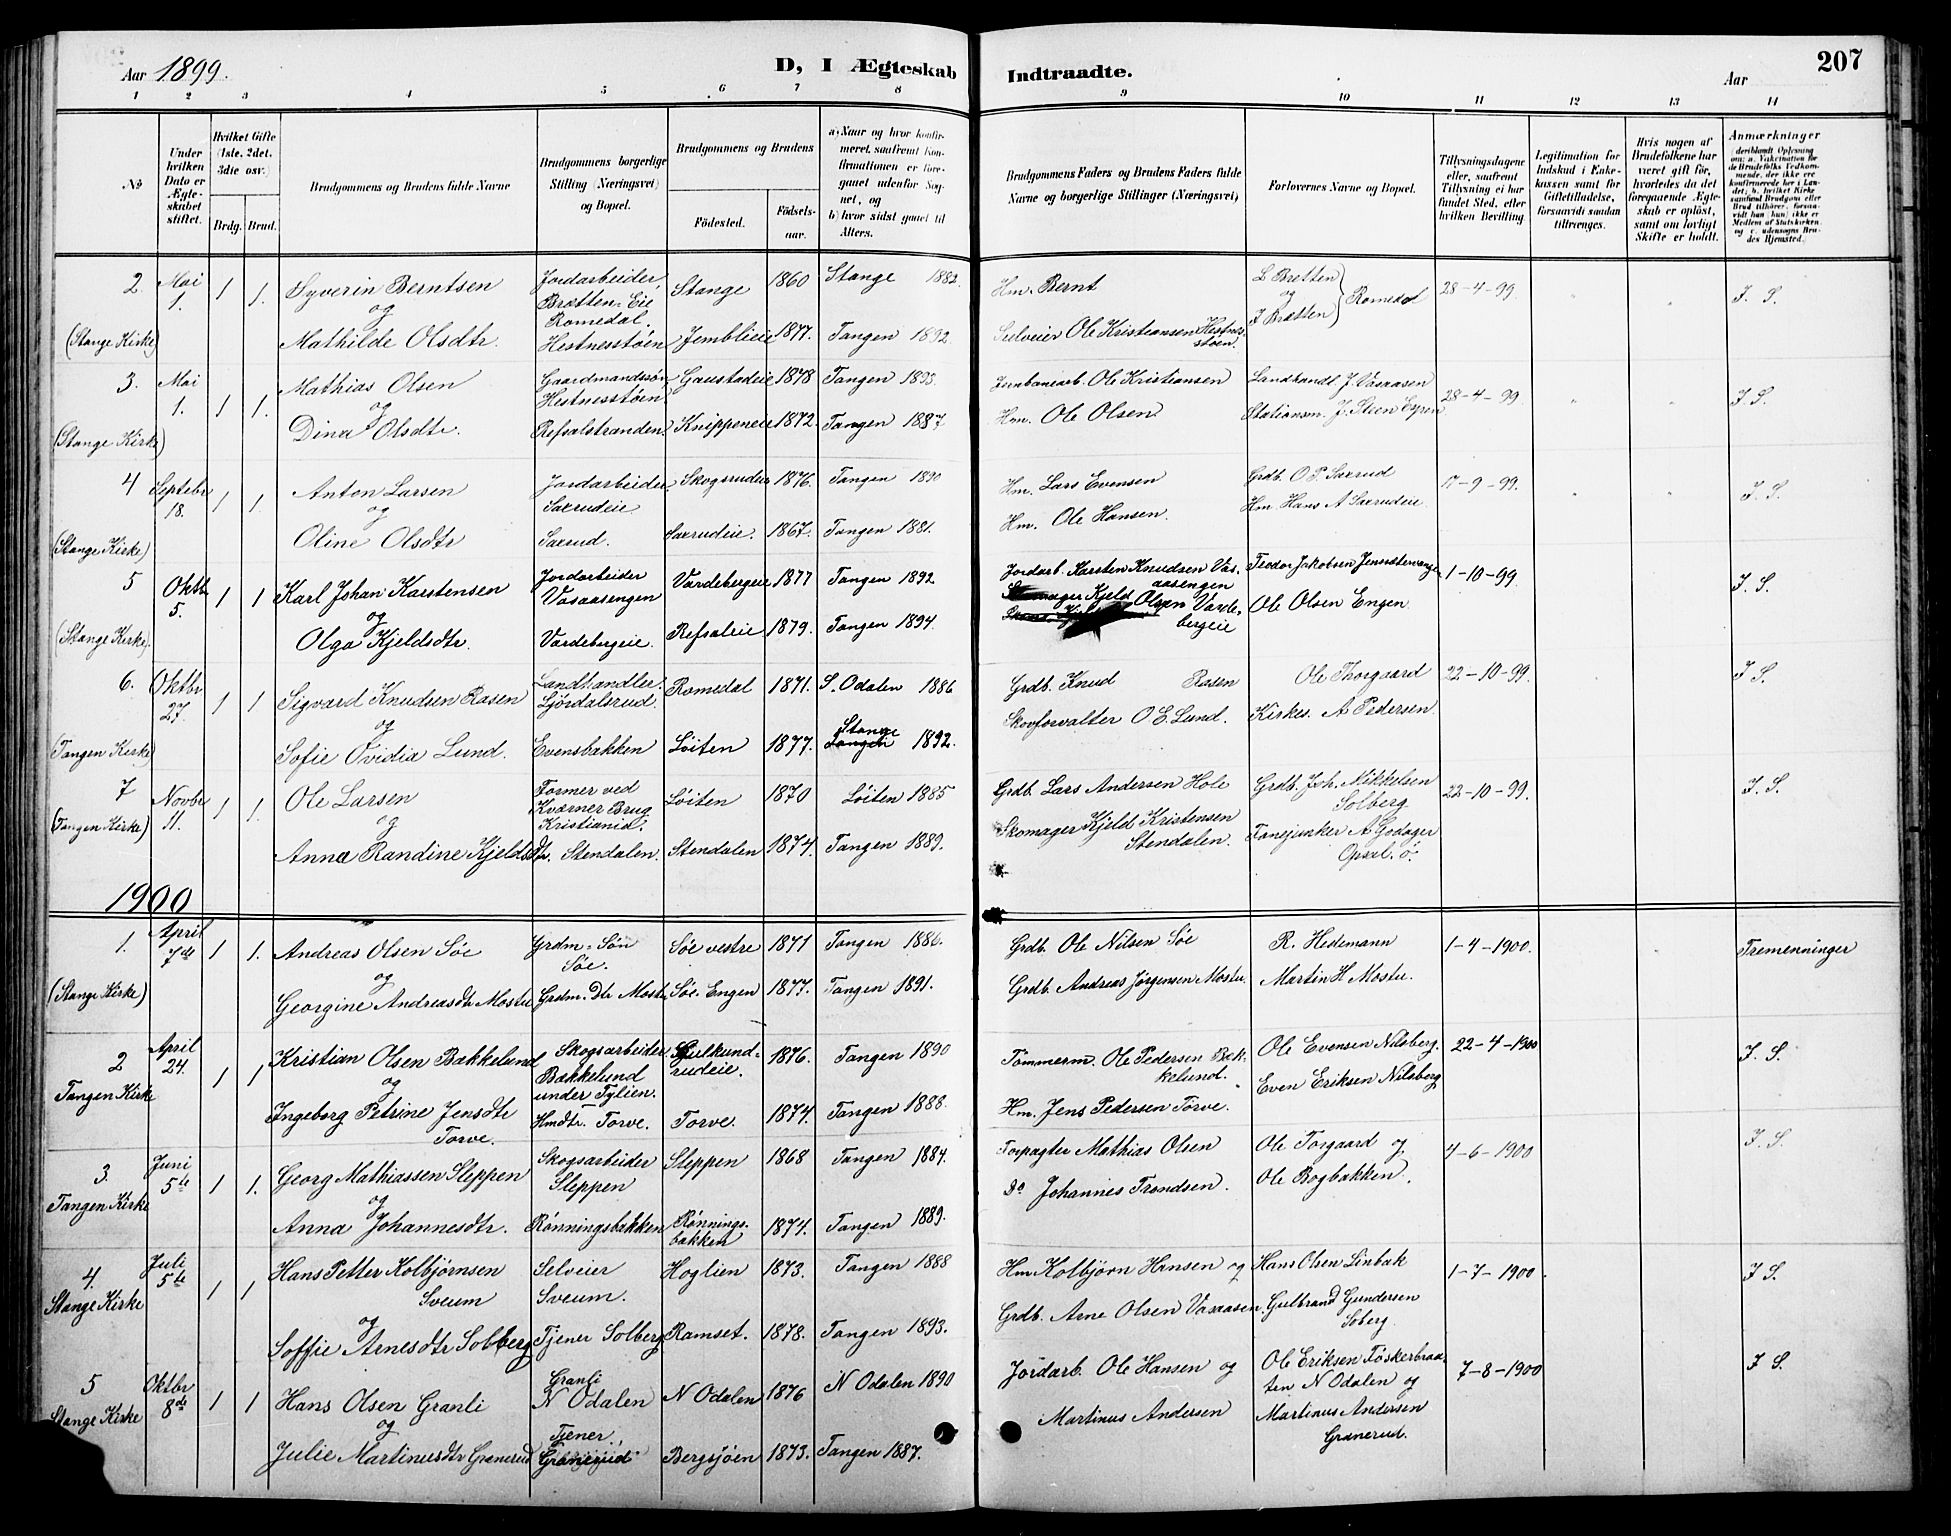 Aar 1899.
D, I Ægteskab Indtraadte.
Aar
207
1 2 3 4 5 6 7 8 9 10 11 12 13 14
No
Under hvilken Dato er Ægteskabet stiftet.
Hvilket Gifte (1ste, 2det, 3die osv.)
Brdg. Brud.
Brudgommens og Brudens fulde Navne
Brudgommens borgerlige Stilling (Næringsvei) og Bopæl.
Brudgommens og Brudens
Fødested.
Fødselsaar.
a) Naar og hvor konfirmeret, saafremt Konfirmationen er foregaaet udenfor Sognet, og
b) hvor sidst gaaet til Alters.
Brudgommens Faders og Brudens Faders fulde Navne og borgerlige Stillinger (Næringsvei)
Forlovernes Navne og Bopæl.
Tillysningsdagene eller, saafremt Tillysning ei har fundet Sted, efter hvilken Bevilling
Legitimation for Indskud i Enkekassen samt for Giftetilladelse, forsaavidt saadan tiltrænges.
Hvis nogen af Brudefolkene har været gift før, hvorledes da det foregaaende Ægteskab er opløst, samt om lovligt Skifte er holdt.
Anmærkninger (deriblandt Oplysning om: a. Vakcination for de Brudefolks Vedkommende, der ikke ere konfirmerede her i Landet; b. hvilket Kirkesamfund Brudgom eller Brud tilhører, forsaavidt han (hun) ikke er Medlem af Statskirken, og c. udensogns Brudes Hjemsted.)
2. Mai 1. 1 1. Syverin Berntsen Jordarbeider, Brætten-Eie Romedal. Stange 1860 Stange 1882. Hm. Bernt L Brætten og J Brætten } Romedal 28-4-99. J. S.
(Stange Kirke) og
Mathilde Olsdtr. Hestnesstøen Jemblieie 1877. Tangen 1892. Selveier Ole Kristiansen Hestnesstøen.
3. Mai 1. 1 1. Mathias Olsen Gaardmandssøn Hestnesstøen Gaustadeie 1878 Tangen 1893. Jernbanearb. Ole Kristiansen Landhandl. J. Vasaasen 28-4-99. J S.
og
(Stange Kirke) Dina Olsdtr. Refsalstranden. Knippeneie 1872. Tangen 1887 Hm. Ole Olsen Stationsm. J. Steen Espen
4 Septebr 18. 1 1. Anton Larsen Jordarbeider, Saxrudeie Skogsrudeie 1876. Tangen 1890 Hm. Lars Evensen Grdb. O P. Saxrud 17-9-99. J. S.
og
(Stange Kirke) Oline Olsdtr Saxrud. Saxrudeie. 1867. Tangen 1881. Hm. Ole Hansen. Hm Hans A Saxrudeie
5 Oktb. 5. 1 1 Karl Johan Karstensen Jordarbeider Vasaasengen Vardebergeie 1877 Tangen 1892. Jordarb. Karsten Knudsen Vasaasengen Teodor Jakobsen 1-10-99. J. S.
og
(Stange Kirke). Olga Kjeldsdtr. Vardebergeie. Refsaleie 1879. Tangen 1894. Skomager Kjeld Olsen Vardebergeie Ole Olsen Engen.
6. Oktbr 27. 1 1 Sigvard Knudsen Rasen Landhandler. Ljørdalsrud. Romedal 1871. S. Odalen 1886 Grdb. Knud Rasen Ole Thorgaard 22-10-99. J S.
og
(Tangen Kirke) Sofie Ovidia Lund. Evensbakken Løiten 1877. Stange 1892. Skovforvalter O E. Lund. Kirkes. A Pedersen.
7 Novbr 11. 1 1. Ole Larsen Former ved Kværner Brug Kristiania. Løiten 1870 Løiten 1885 Grdb. Lars Andersen Hole Grdb. Joh. Mikkelsen Solberg 22-10-99. J. S.
(Tangen Kirke) og
Anna Randine Kjeldsdtr. Stendalen. Stendalen 1874. Tangen 1889. Skomager Kjeld Kristensen Stendalen. Fanejunker A Godager Opsal. ø.
1900
1. April 7de 1 1. Andreas Olsen Søe Grdm-Søn Søe. Søe vestre 1871 Tangen 1886. Grdb. Ole Nilsen Søe R. Hedemann 1-4-1900. Tremenninger
og
(Stange Kirke) Georgine Andreasdtr Mostu Grdm.-Dtr Mostu Søe-Engen 1877. Tangen 1891. Grdb. Andreas Jørgensen Mostu. Martin H Mostu.
2 April 24. 1 1 Kristian Olsen Bakkelund Skogsarbeider Bakkelund under Tylien. Gulkundrudeie. 1876. Tangen 1890 Tømmerm. Ole Pedersen Bakkelund. Ole Evensen Nilsberg. 22-4-1900 J. S.
Tangen Kirke og
Ingeborg Petrine Jensdtr Torve. Hmdtr. Torve. Torve. 1874. Tangen 1888. Hm. Jens Pedersen Torve. Even Eriksen Nilsberg
3. Juni 5te 1 1. Georg Mathiassen Sleppen Skogsarbeider Sleppen Sleppen 1868 Tangen 1884. Forpagter Mathias Olsen Ole Torgaard og 4-6-1900 J. S.
Tangen Kirke og
Anna Johannesdtr. Rønningsbakken Rønningsbakken 1874. Tangen 1889. Do Johannes Trondsen. Ole Bogbakken.
4. Juli 5te 1 1 Hans Petter Kolbjørnsen Sveum Selveier Sveum. Hoglien 1873. Tangen 1888 Hm. Kolbjørn Hansen og Hans Olsen Linbak 1-7-1900. J S.
Stange Kirke og
Soffie Arnesdtr Solberg Tjener Solberg Ramset. 1878. Tangen 1893. Grdb. Arne Olsen Vasaasen. Gulbrand Gundersen Soberg.
5 Oktbr 8de 1 1 Hans Olsen Granli Granli N Odalen N Odalen 1876 N Odalen 1890 Jordarb. Ole Hansen og Ole Eriksen Foskerbraaten N Odalen og 7-8-1900 J S.
Stange Kirke og
Julie Martinusdtr Granerud Tjener Granerud Bergsjøen 1873. Tangen 1887. Martinus Andersen Martinus Andersen Granerud.